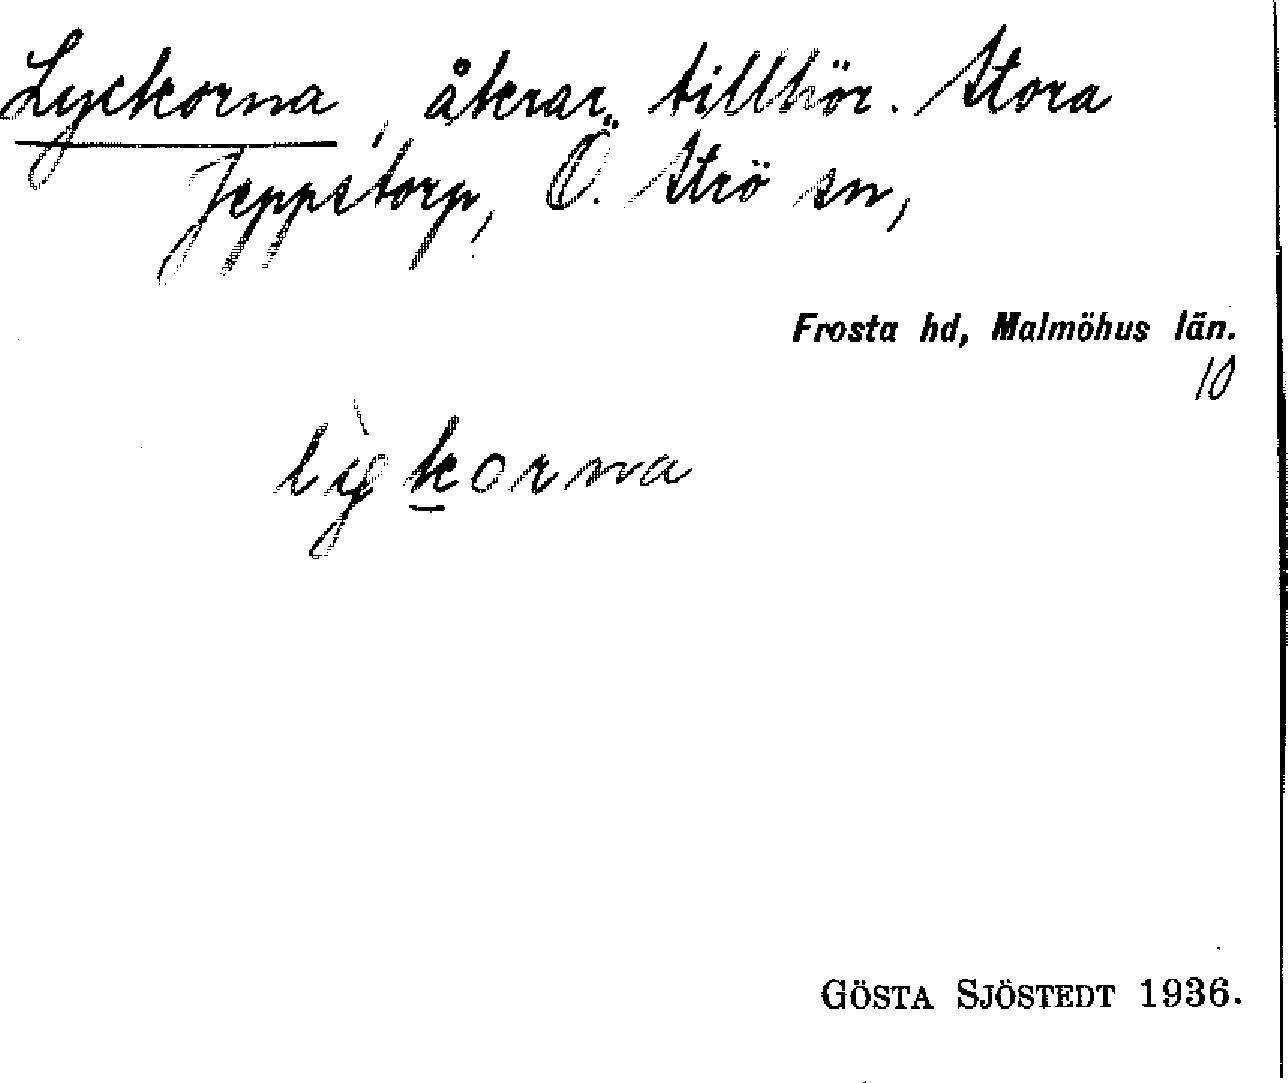 Lyckorna, åkrar, tillhör. Stora
Jeppstorp, Ö. Strö sn,
Frosta hd, Malmöhus län.
10
lỳkorna
GÖSTA SJÖSTEDT 1936.